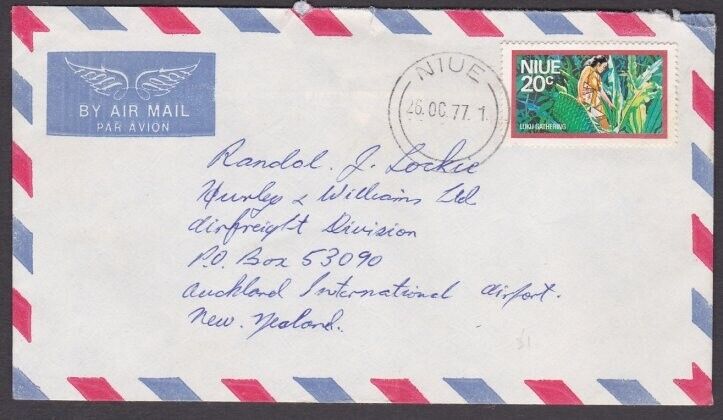 BY AIR MAIL
PAR AVION
NIUE
26.OC.77.1
NIUE
20c
LUKU GATHERING
Randol. J. Lockie
Hurley & Williams Ltd
Airfreight Division
P.O. Box 53090
Auckland International Airport.
New Zealand.
$1